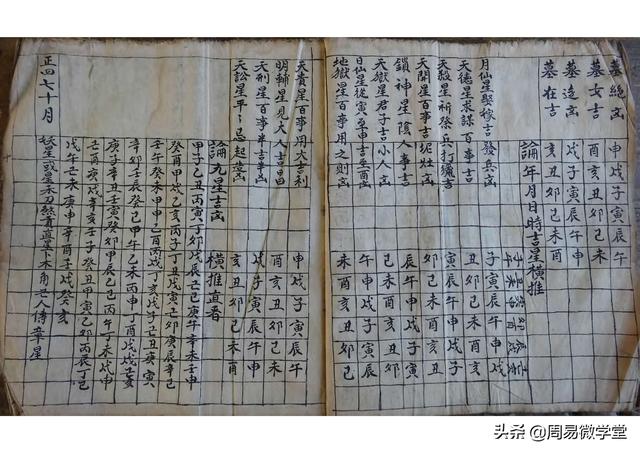 墓絕凶 申戌子寅辰午
墓女吉 酉亥丑卯巳未
墓迭凶 戌子寅辰午申
墓在吉 亥丑卯巳未酉
論年月日時吉星橫推
月仙星娶嫁吉發兵凶 子寅辰午申戌
天德星求謀百事吉 丑卯巳未酉亥
天殺星祈祭兵打獵吉 寅辰午申戌子
天開星百事吉坭灶凶 卯巳未酉亥丑
鎖神星陰人事吉 辰午申戌子寅
天獄星君子吉小人凶 巳未酉亥丑卯
日仙星從寅至申吉至酉凶 午申戌子寅辰
地獄星百事用之則凶 未酉亥丑卯巳
天貴星百事用大吉利 申戌子寅辰午
明輔星見大人吉昌 酉亥丑卯巳未
天刑星百事半吉半凶 戌子寅辰午申
天訟星平 起 凶 亥丑卯巳未酉
論九星吉凶 橫推直看
甲子乙丑丙寅丁卯戊辰己巳庚午辛未壬申
癸酉甲戌乙亥丙子丁丑戊寅己卯庚辰辛巳
壬午癸未甲申乙酉丙戌丁亥戊子己丑庚寅
辛卯壬辰癸巳甲午乙未丙申丁酉戊戌己亥
庚子辛丑壬寅癸卯甲辰乙巳丙午丁未戊申
己酉庚戌辛亥壬子癸丑甲寅乙卯丙辰丁巳
戊午己未庚申辛酉壬戌癸亥
妖星或星禾刀煞貢直星卜木角己人傳章星
正四七十月
头条 @周易微学堂